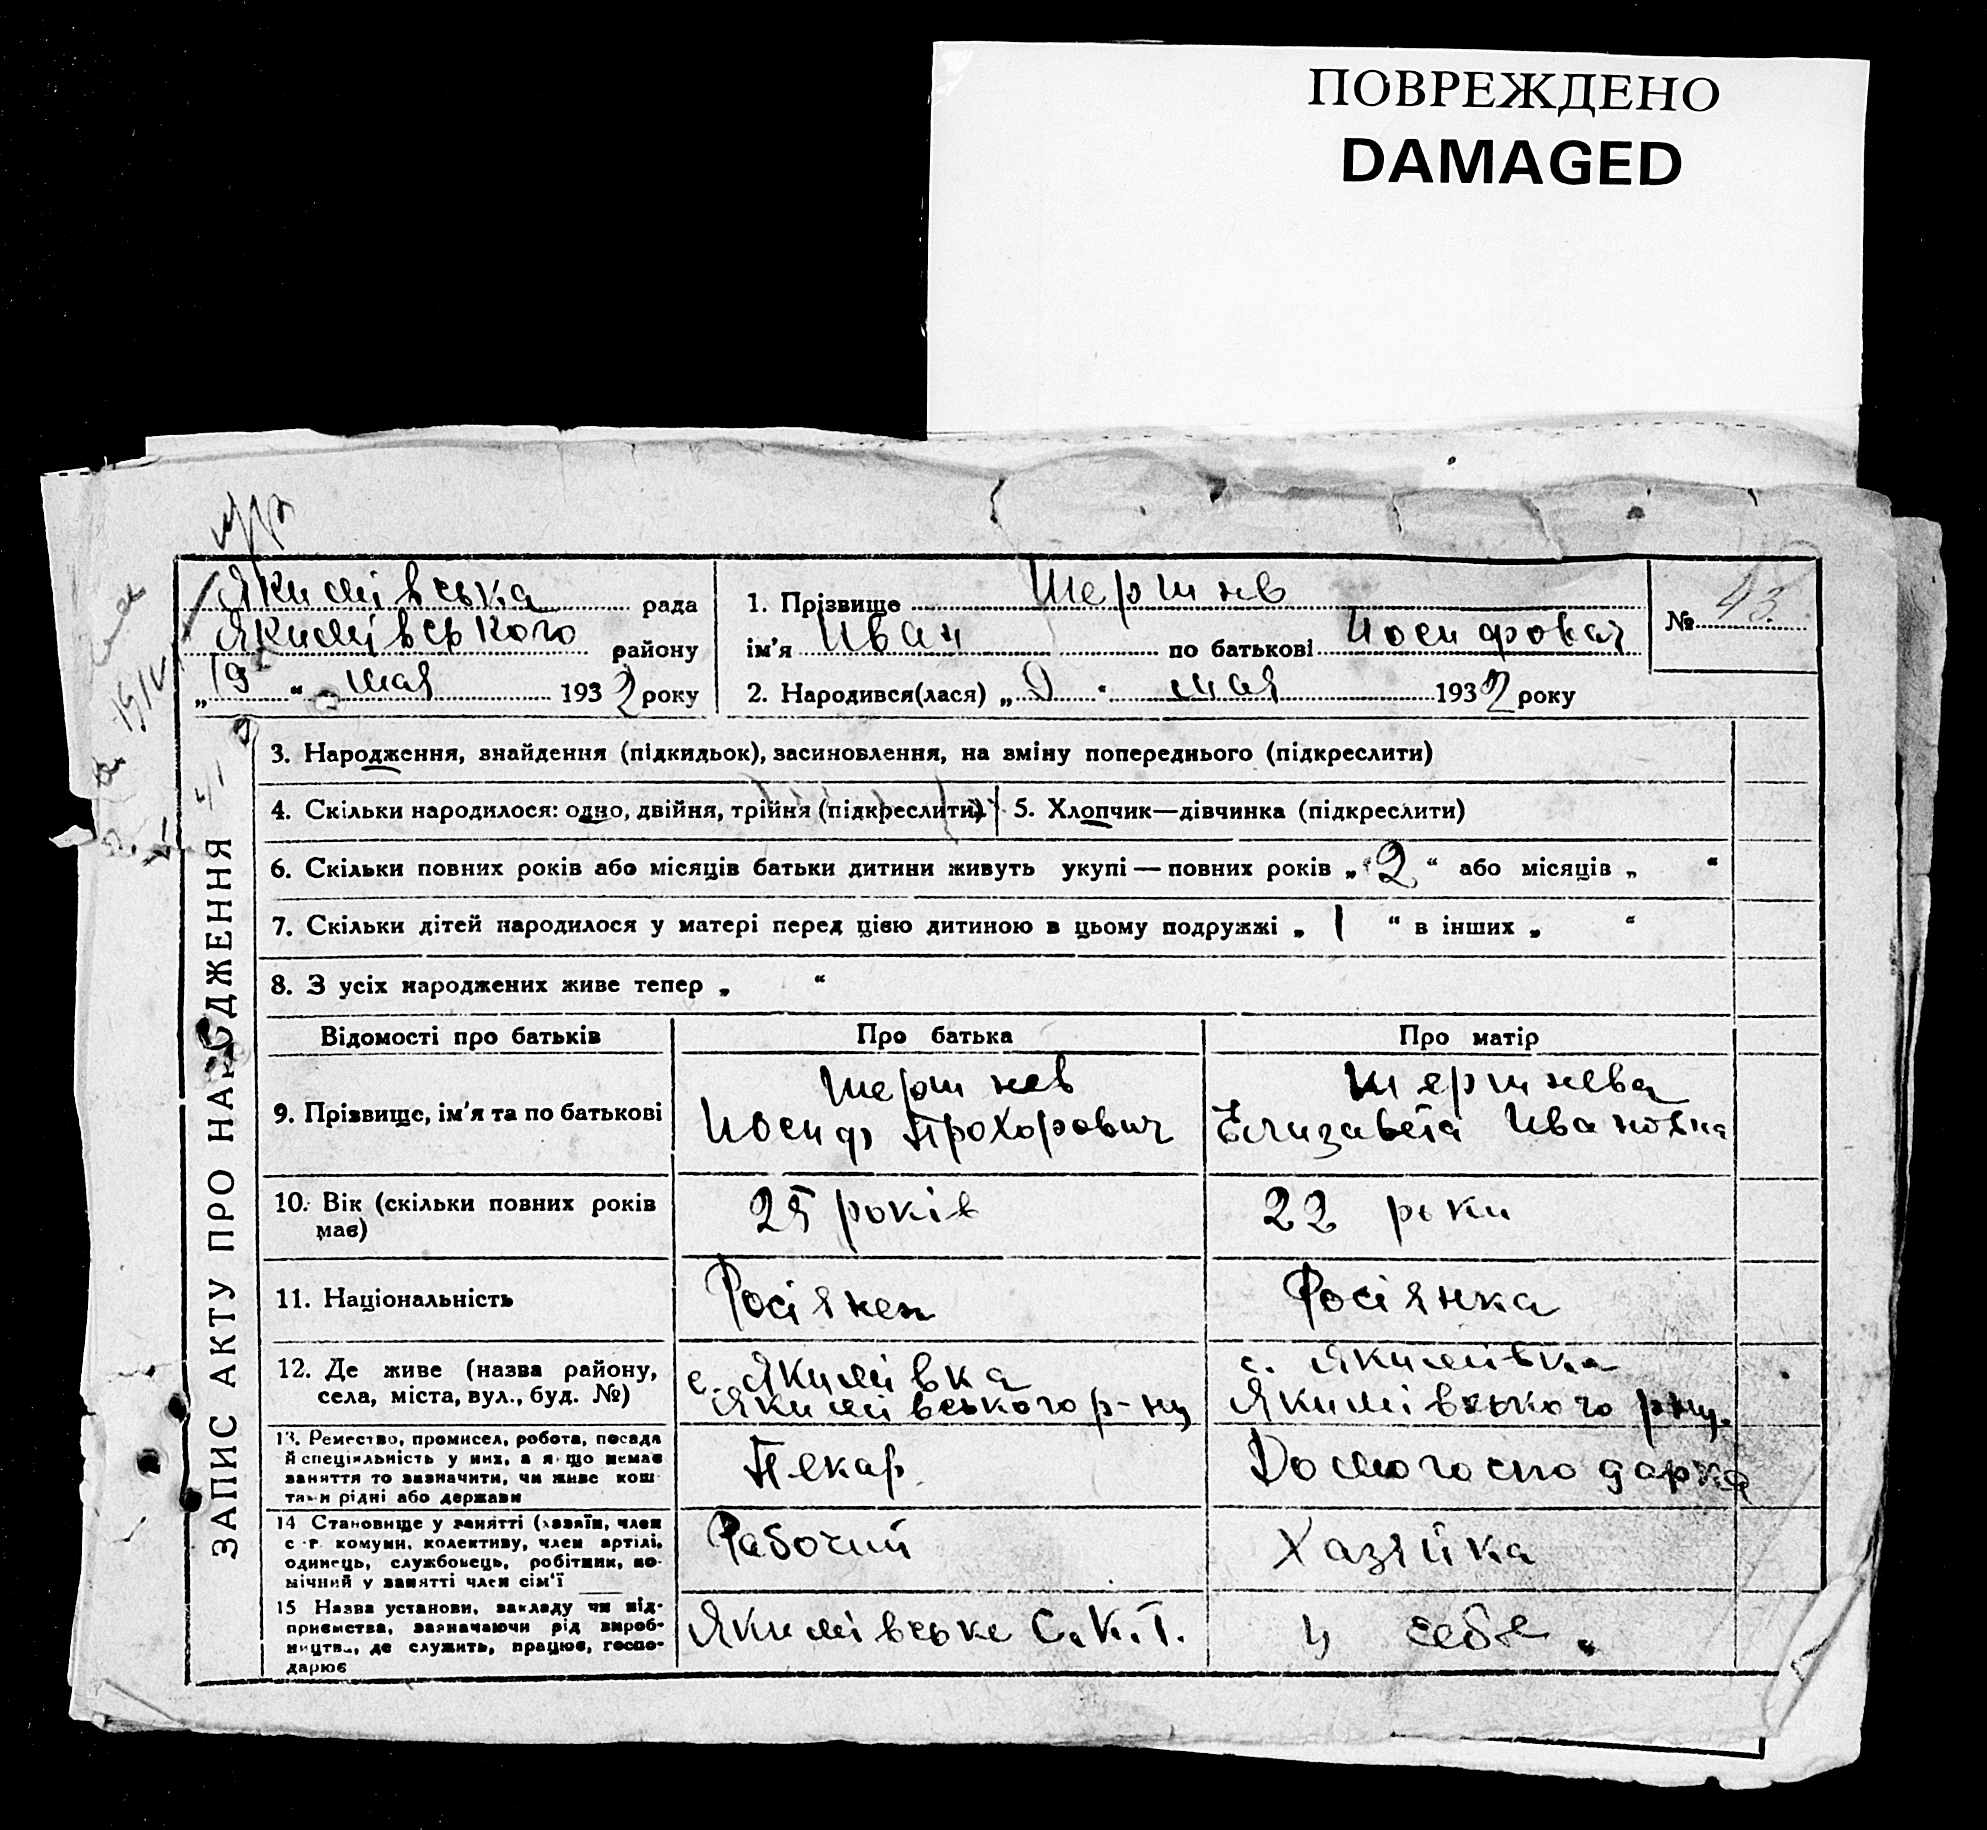 ПОВРЕЖДЕНО
DAMAGED
Якимівська рада
Якимівського району
„19“ мая 1932 року
1. Прізвище Шершнев
ім'я Иван по батькові Иосифович
№ 43.
2. Народився(лася) „9“ мая 1932 року
ЗАПИС АКТУ ПРО НАРОДЖЕННЯ
3. Народження, знайдення (підкидьок), засиновлення, на зміну попереднього (підкреслити)
4. Скільки народилося: одно, двійня, трійня (підкреслити). 5. Хлопчик—дівчинка (підкреслити)
6. Скільки повних років або місяців батьки дитини живуть укупі — повних років „2“ або місяців „ “
7. Скільки дітей народилося у матері перед цією дитиною в цьому подружжі „1“ в інших „ “
8. З усіх народжених живе тепер „ “
Відомості про батьків Про батька Про матір
9. Прізвище, ім'я та по батькові
Шершнев
Иосиф Прохорович
Шершнева
Елизавета Ивановна
10. Вік (скільки повних років
має)
25 років
22 роки
11. Національність
Росіянен
Росіянка
12. Де живе (назва району,
села, міста, вул., буд. №)
с. Якимівка
Якимівського р-ну
с. Якимівка
Якимівського р-ну.
13. Ремество, промисел, робота, посада
й спеціяльність у них, а якщо немає
заняття то зазначити, чи живе кош-
тами рідні або держави
Пекар
Домогосподарка
14 Становище у занятті (хазяїн, член
с.-г. комуни, колективу, член артілі,
одинець, службовець, робітник, по-
мічний у занятті член сім'ї
Рабочий
Хазяйка
15 Назва установи, закладу чи під-
приємства, зазначаючи рід вироб-
ництва, де служить, працює, госпо-
дарює
Якимівське С.К.Т.
у себе.